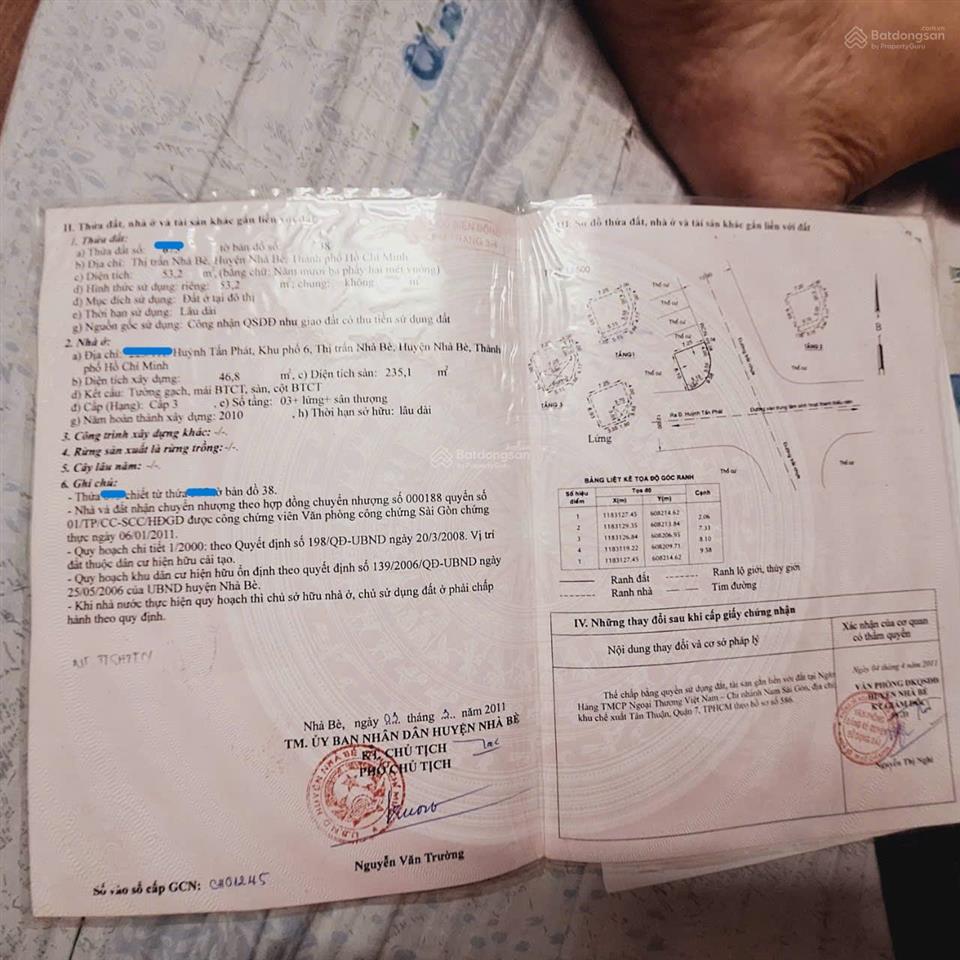 Batdongsan
.com.vn
by PropertyGuru
II. Thửa đất, nhà ở và tài sản khác gắn liền với đất
1. Thửa đất:
a) Thửa đất số: tờ bản đồ số: 38
b) Địa chỉ: Thị trấn Nhà Bè, Huyện Nhà Bè, Thành phố Hồ Chí Minh
c) Diện tích: 53,2 m², (bằng chữ: Năm mươi ba phẩy hai mét vuông)
d) Hình thức sử dụng: riêng: 53,2 m²; chung: không m²
đ) Mục đích sử dụng: Đất ở tại đô thị
e) Thời hạn sử dụng: Lâu dài
g) Nguồn gốc sử dụng: Công nhận QSDĐ như giao đất có thu tiền sử dụng đất
2. Nhà ở:
a) Địa chỉ: Huỳnh Tấn Phát, Khu phố 6, Thị trấn Nhà Bè, Huyện Nhà Bè, Thành
phố Hồ Chí Minh
b) Diện tích xây dựng: 46,8 m², c) Diện tích sàn: 235,1 m²
d) Kết cấu: Tường gạch, mái BTCT, sàn, cột BTCT
đ) Cấp (Hạng): Cấp 3 , e) Số tầng: 03+ lửng+ sân thượng
g) Năm hoàn thành xây dựng: 2010 , h) Thời hạn sở hữu: lâu dài
3. Công trình xây dựng khác: -/-.
4. Rừng sản xuất là rừng trồng: -/-.
5. Cây lâu năm: -/-.
6. Ghi chú:
- Thửa chiết từ thửa tờ bản đồ 38.
- Nhà và đất nhận chuyển nhượng theo hợp đồng chuyển nhượng số 000188 quyển số
01/TP/CC-SCC/HĐGD được công chứng viên Văn phòng công chứng Sài Gòn chứng
thực ngày 06/01/2011.
- Quy hoạch chi tiết 1/2000: theo Quyết định số 198/QĐ-UBND ngày 20/3/2008. Vị trí
đất thuộc dân cư hiện hữu cải tạo.
- Quy hoạch khu dân cư hiện hữu ổn định theo quyết định số 139/2006/QĐ-UBND ngày
25/05/2006 của UBND huyện Nhà Bè.
- Khi nhà nước thực hiện quy hoạch thì chủ sở hữu nhà ở, chủ sử dụng đất ở phải chấp
hành theo quy định.
Nhà Bè, ngày 02 tháng 2 năm 2011
TM. ỦY BAN NHÂN DÂN HUYỆN NHÀ BÈ
KT. CHỦ TỊCH
PHÓ CHỦ TỊCH
Nguyễn Văn Trường
Số vào sổ cấp GCN: CH01245
III. Sơ đồ thửa đất, nhà ở và tài sản khác gắn liền với đất
Thổ cư
Thổ cư
Thổ cư
Thổ cư
TẦNG 1
TẦNG 2
TẦNG 3
Lửng
B
Thổ cư
Ra Đ. Huỳnh Tấn Phát
Thổ cư
Thổ cư
BẢNG LIỆT KÊ TỌA ĐỘ GÓC RANH
Số hiệu điểm Tọa độ Cạnh
X(m) Y(m)
1 1183127.45 608214.62
2.06
2 1183129.35 608213.84
7.31
3 1183126.84 608206.95
8.10
4 1183119.22 608209.71
9.58
1 1183127.45 608214.62
Ranh đất Ranh lộ giới, thủy giới
Ranh nhà Tim đường
IV. Những thay đổi sau khi cấp giấy chứng nhận
Nội dung thay đổi và cơ sở pháp lý
Xác nhận của cơ quan
có thẩm quyền
Thế chấp bằng quyền sử dụng đất, tài sản gắn liền với đất tại Ngân
Hàng TMCP Ngoại Thương Việt Nam – Chi nhánh Nam Sài Gòn, địa chỉ:
khu chế xuất Tân Thuận, Quận 7, TPHCM theo hồ sơ số 586.
Ngày 04 tháng 4 năm 2011
VĂN PHÒNG ĐKQSDĐ
HUYỆN NHÀ BÈ
Nguyễn Thị Nghi
Batdongsan
by PropertyGuru